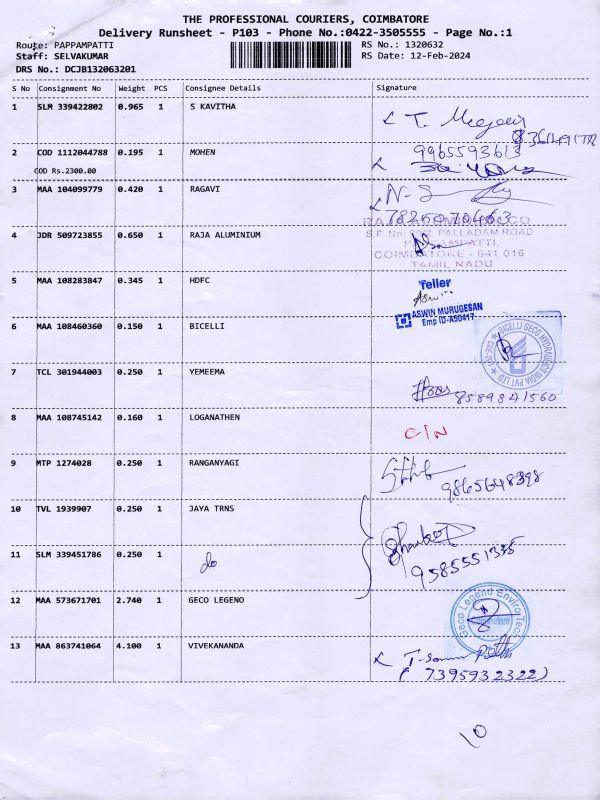 THE PROFESSIONAL COURIERS, COIMBATORE
Delivery Runsheet - P103 - Phone No.:0422-3505555 - Page No.:1
Route: PAPPAMPATTI RS No.: 1320632
Staff: SELVAKUMAR RS Date: 12-Feb-2024
DRS No.: DCJB132063201
S No Consignment No Weight PCS Consignee Details Signature
1 SLM 339422802 0.965 1 S KAVITHA
2 COD 1112044788 0.195 1 MOHEN 9965593613
COD Rs.2300.00
3 MAA 104099779 0.420 1 RAGAVI
4 JDR 509723855 0.650 1 RAJA ALUMINIUM
PALLADAM ROAD
COIMBATORE - 641 016
TAMIL NADU
5 MAA 108283847 0.345 1 HDFC Teller
ASWIN MURUGESAN
Emp ID-A50417
6 MAA 108460360 0.150 1 BICELLI
BICELLI GECO HYDRAULICS INDIA PVT LTD
7 TCL 301944003 0.250 1 YEMEEMA 8589841560
8 MAA 108745142 0.160 1 LOGANATHEN C/N
9 MTP 1274028 0.250 1 RANGANYAGI 9865648398
10 TVL 1939907 0.250 1 JAYA TRNS
11 SLM 339451786 0.250 1 do 9585551335
12 MAA 573671701 2.740 1 GECO LEGENO
Geco Legend Enviro Tech
13 MAA 863741064 4.100 1 VIVEKANANDA
( 7395932322)
10